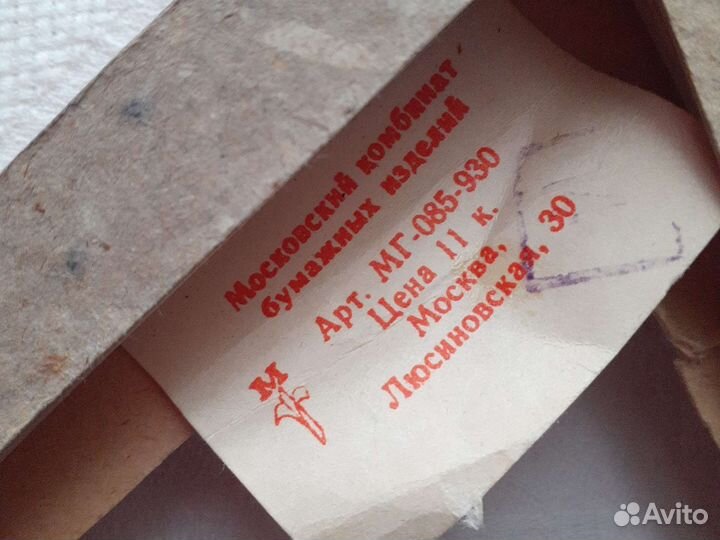 Московский комбинат
бумажных изделий
Арт. МГ-085-930
Цена 11 к.
Москва,
Люсиновская, 30
М
Avito